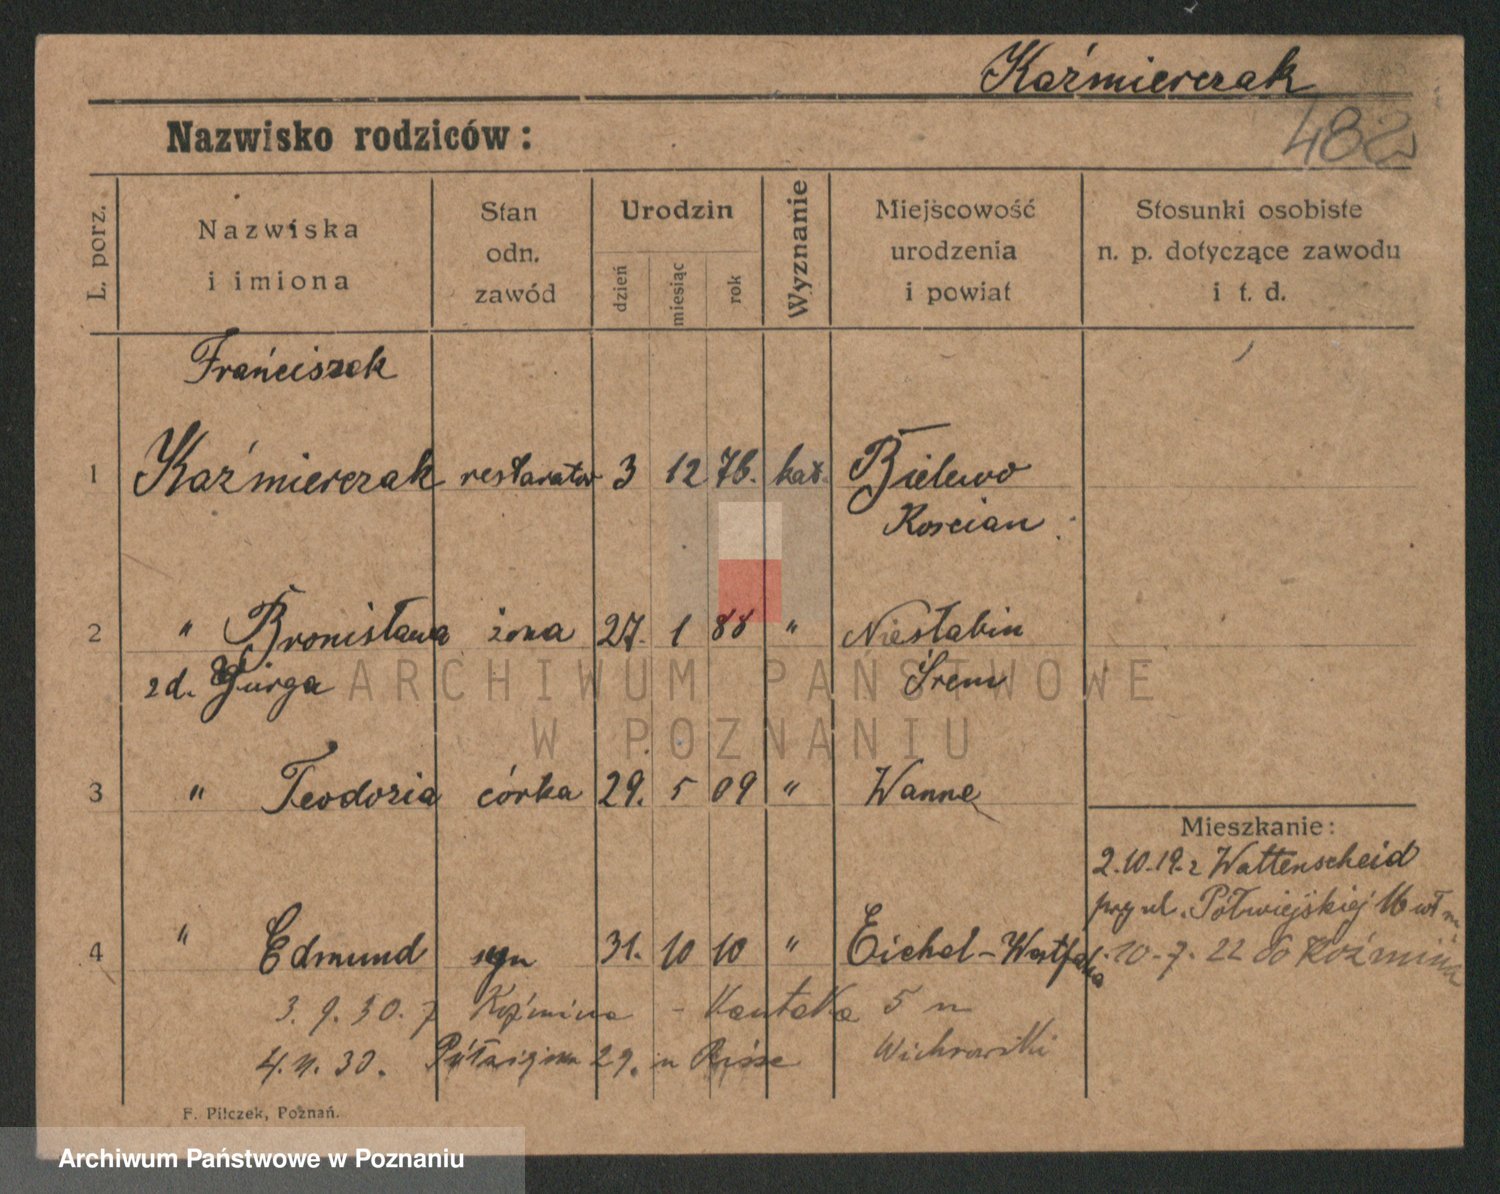 Kaźmierczak
482
Nazwisko rodziców:
L. porz.
Nazwiska
i imiona
Stan
odn.
zawód
Urodzin
dzień
miesiąc
rok
Wyznanie
Miejscowość
urodzenia
i powiat
Stosunki osobiste
n. p. dotyczące zawodu
i t. d.
Franciszek
1 Kaźmierczak restarator 3 12 76. kat. Bielewo
Koscian
2 " Bronisława żona 27. 1 88 " Niesłabin
zd. Śrem
3 " Teodozia córka 29. 5 09 " Wanne
Mieszkanie:
2.10.19. z Wattenscheid
przy ul. Półwiejskiej 16
4 " Edmund syn 31. 10 10 " Eickel-Westfalia
10-7.22 do Koźmina
3.9.30. z Koźmina - 5 m
4.11.30. 29. m
F. Pilczek, Poznań.
ARCHIWUM PAŃSTWOWE
W POZNANIU
Archiwum Państwowe w Poznaniu